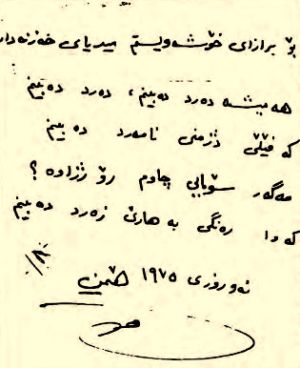 بۆ برازای خۆشەویستم میدیای خەزنەدار
هەمیشە دەرد دەبینم، دەرد دەبینم
کە فێڵی دژمنی نامەرد دەبینم
مەگەر سۆمایی چاوم رۆژژاوە؟
کە وا رەنگی بەهاری زەرد دەبینم
نەورۆزی ١٩٧٥ هێمن